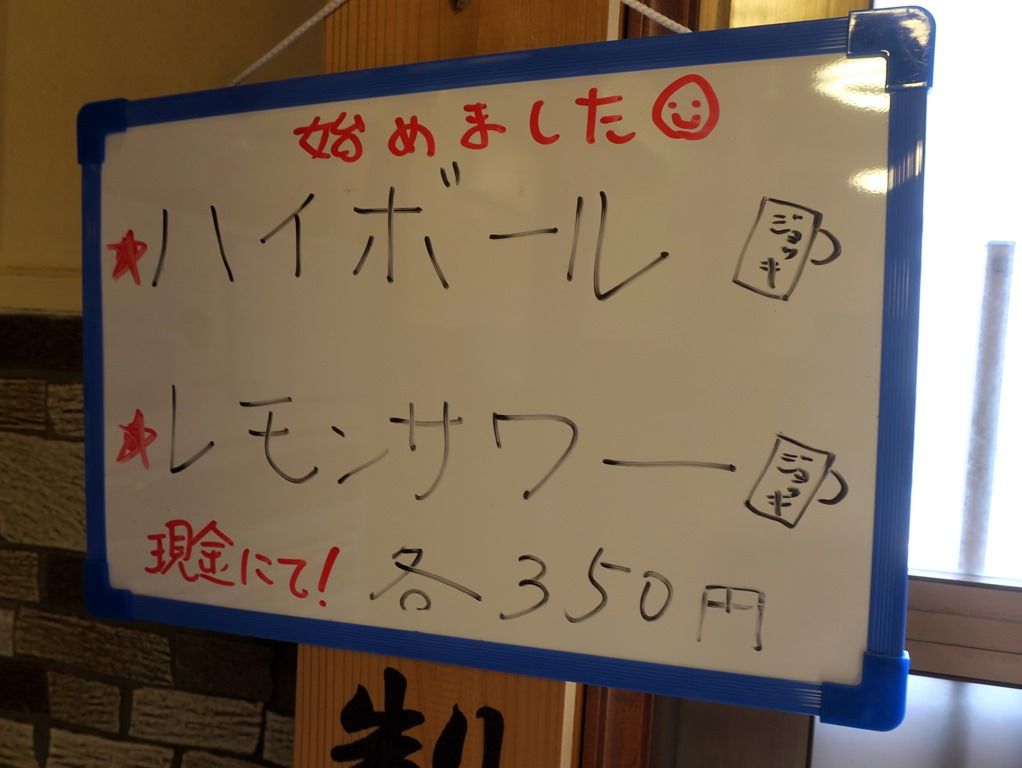 始めました
ハイボール ジョッキ
レモンサワー ジョッキ
現金にて! 各350円
製